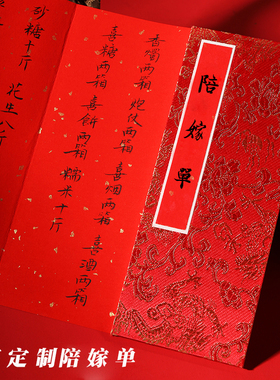 陪嫁单
香烟两箱 炮仗两箱 喜烟两箱 喜酒两箱
喜糖两箱 喜饼两箱 糯米十斤
砂糖十斤 花生八斤
定制陪嫁单